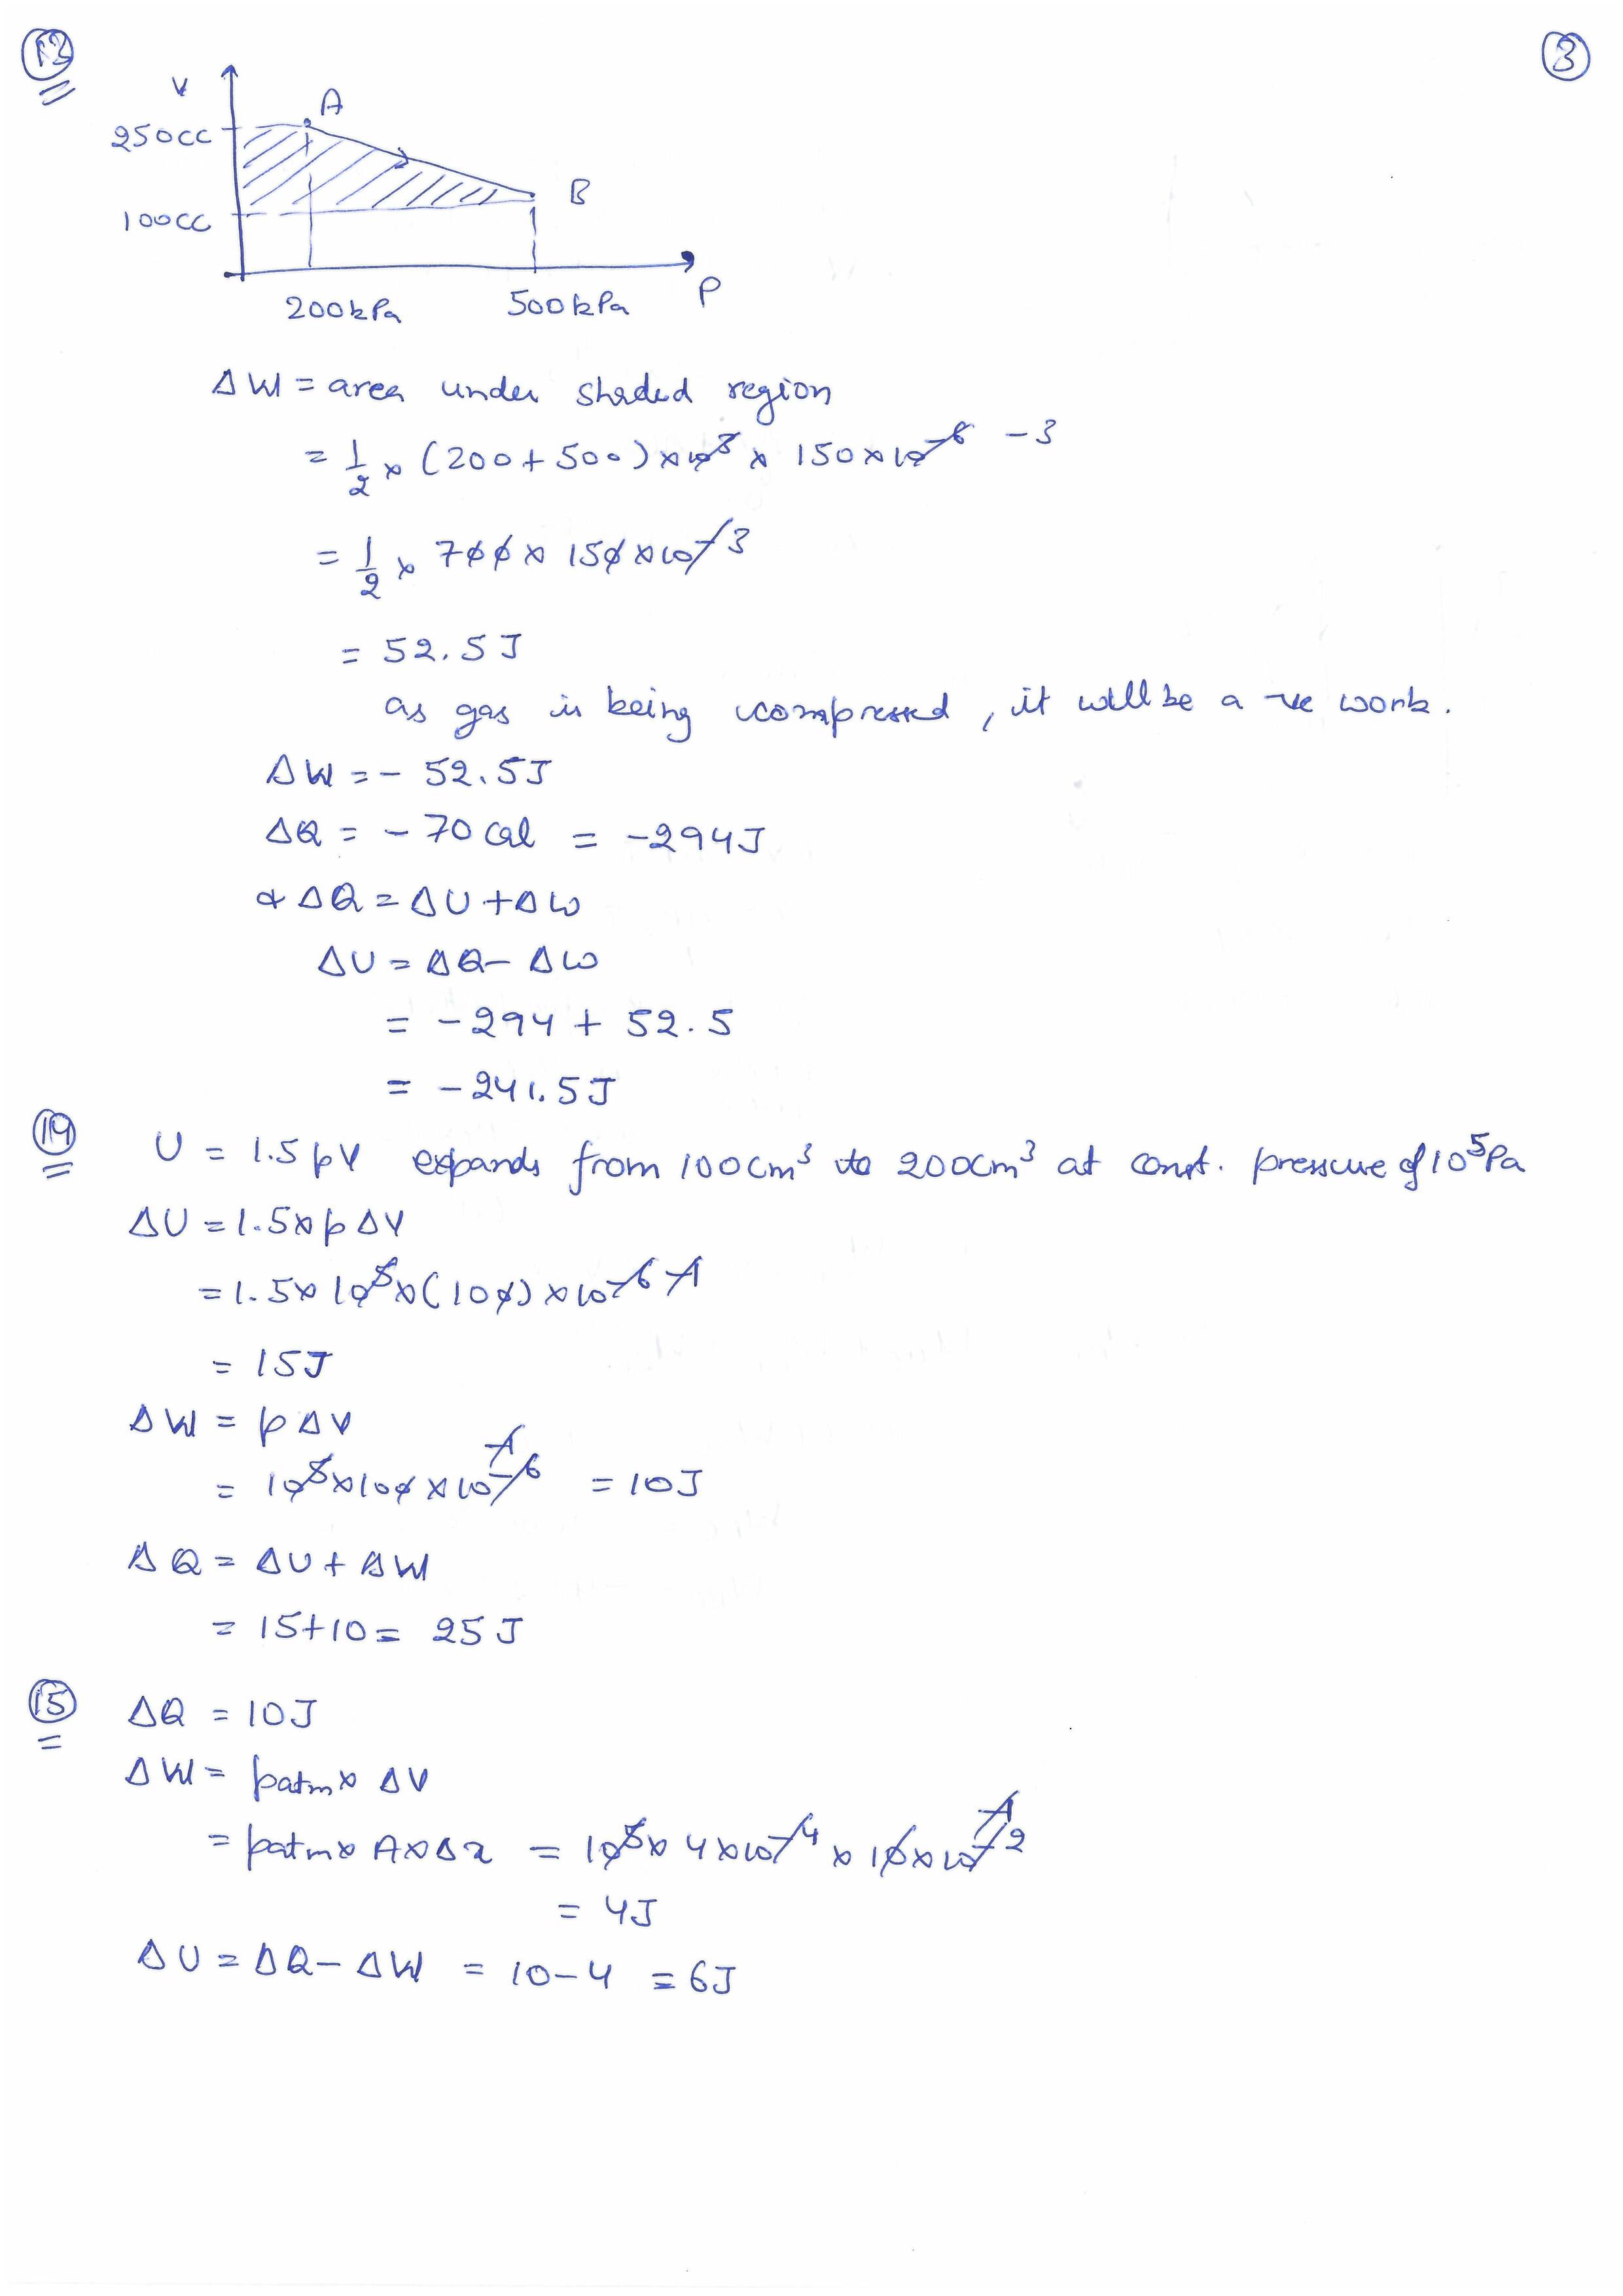 13
3
V
A
250cc
B
100cc
P
200kPa 500kPa
ΔW = area under shaded region
= 1/2 × (200+500)×10^3 × 150×10^-6 -3
= 1/2 × 700 × 150×10^-3
= 52.5J
as gas is being compressed, it will be a -ve work.
ΔW = - 52.5J
ΔQ = - 70 Cal = -294J
& ΔQ = ΔU + ΔW
ΔU = ΔQ - ΔW
= -294 + 52.5
= -241.5J
14 U = 1.5pV expands from 100cm³ to 200cm³ at const. pressure of 10^5Pa
ΔU = 1.5×pΔV
= 1.5×10^5×(100)×10^-6 -1
= 15J
ΔW = pΔV
-1
= 10^5×100×10^-6 = 10J
ΔQ = ΔU + ΔW
= 15+10 = 25J
15 ΔQ = 10J
ΔW = patm× ΔV
= patm× A×Δx = 10^5× 4×10^-4 × 10×10^-2 -1
= 4J
ΔU = ΔQ - ΔW = 10-4 = 6J